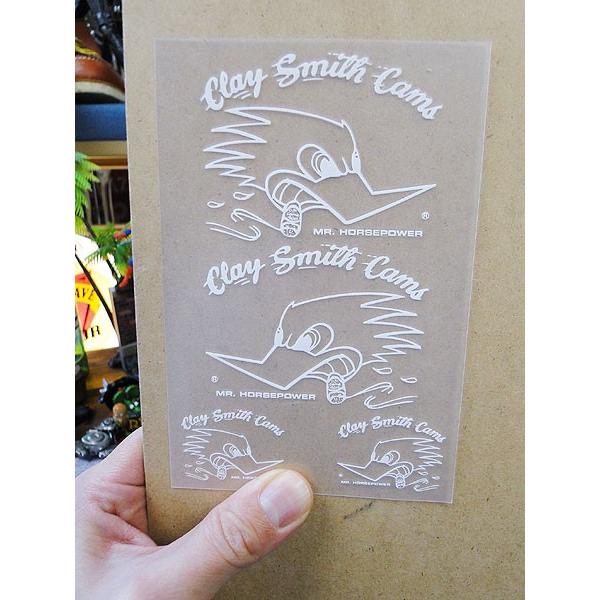 Clay Smith Cams
®
MR. HORSEPOWER
Clay Smith Cams
®
MR. HORSEPOWER
Clay Smith Cams
Clay Smith Cams
MR. HORSEPOWER